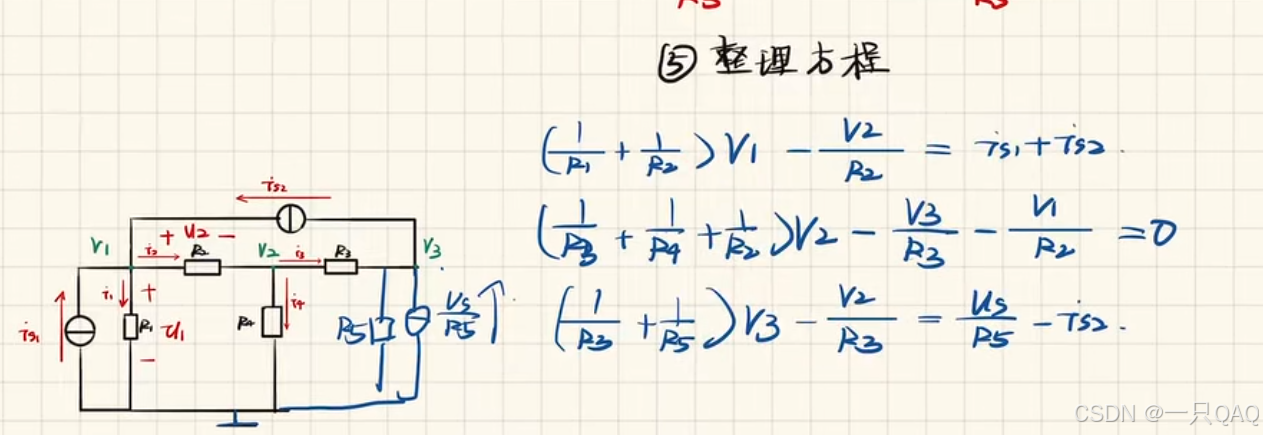 ⑤ 整理方程
(1/R1 + 1/R2)V1 - V2/R2 = is1+is2.
(1/R3 + 1/R4 + 1/R2)V2 - V3/R3 - V1/R2 = 0
(1/R3 + 1/R5)V3 - V2/R3 = Us/R5 - is2.
is2
+ u2 -
V1 i2 R2 V2 i3 R3 V3
is1 i1 + R1 u1 - R4 i4 R5 Us/R5
CSDN @一只QAQ